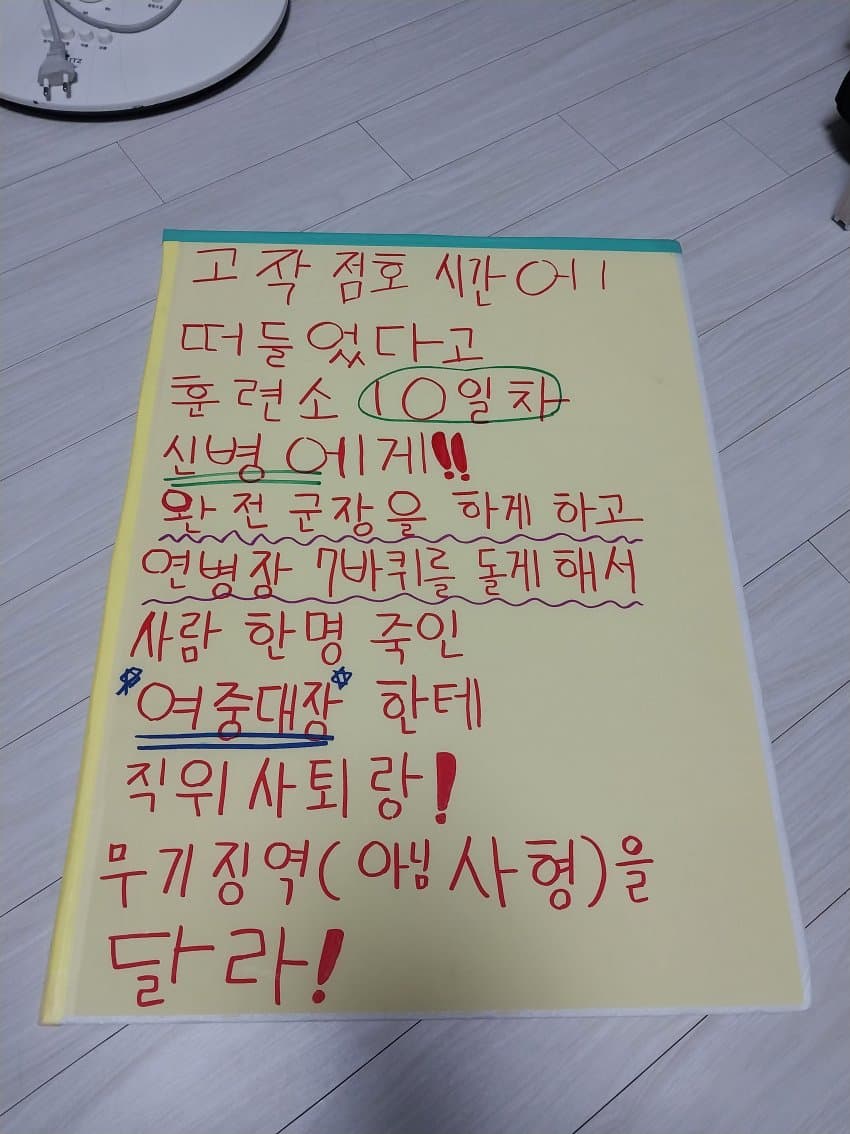 고작 점호 시간에
떠들었다고
훈련소 10일차
신병에게!!
완전군장을 하게 하고
연병장 7바퀴를 돌게 해서
사람 한명 죽인
여중대장 한테
직위사퇴랑!
무기징역(아님 사형)을
달라!